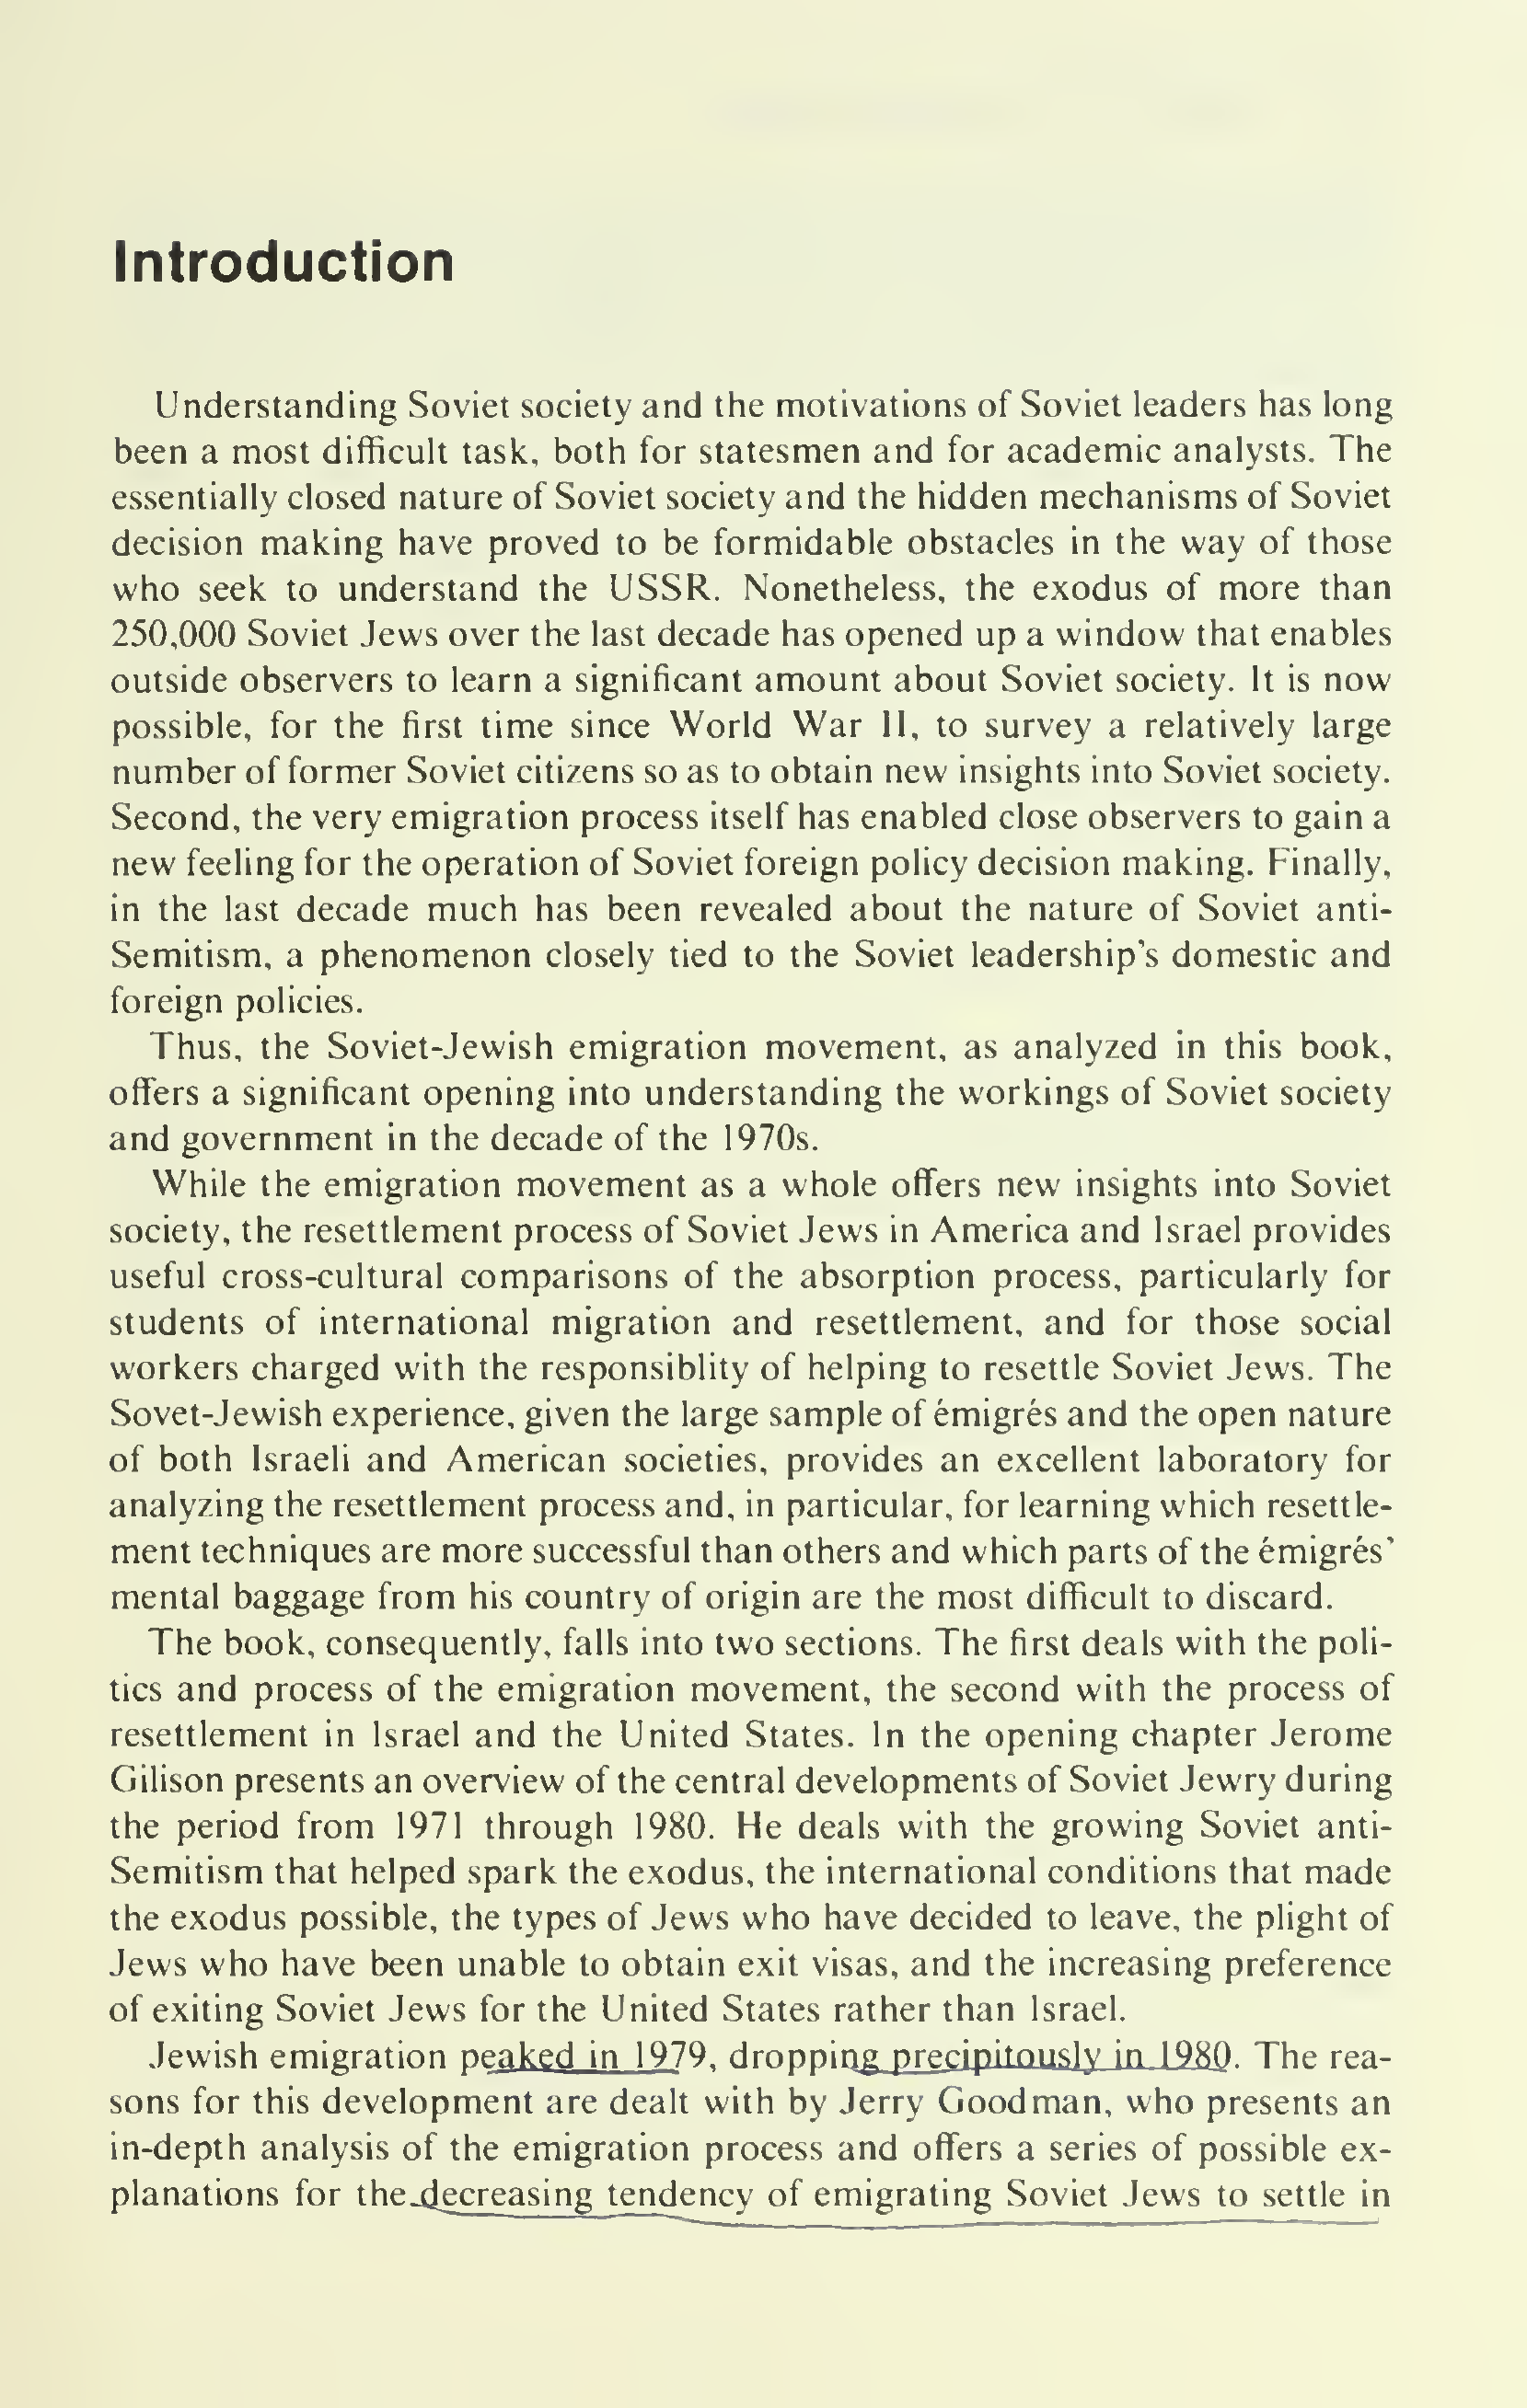 Introduction
Understanding Soviet society and the motivations of Soviet leaders has long
been a most difficult task, both for statesmen and for academic analysts. The
essentially closed nature of Soviet society and the hidden mechanisms of Soviet
decision making have proved to be formidable obstacles in the way of those
who seek to understand the USSR. Nonetheless, the exodus of more than
250,000 Soviet Jews over the last decade has opened up a window that enables
outside observers to learn a significant amount about Soviet society. It is now
possible, for the first time since World War II, to survey a relatively large
number of former Soviet citizens so as to obtain new insights into Soviet society.
Second, the very emigration process itself has enabled close observers to gain a
new feeling for the operation of Soviet foreign policy decision making. Finally,
in the last decade much has been revealed about the nature of Soviet anti-
Semitism, a phenomenon closely tied to the Soviet leadership's domestic and
foreign policies.
Thus, the Soviet-Jewish emigration movement, as analyzed in this book,
offers a significant opening into understanding the workings of Soviet society
and government in the decade of the 1970s.
While the emigration movement as a whole offers new insights into Soviet
society, the resettlement process of Soviet Jews in America and Israel provides
useful cross-cultural comparisons of the absorption process, particularly for
students of international migration and resettlement, and for those social
workers charged with the responsiblity of helping to resettle Soviet Jews. The
Sovet-Jewish experience, given the large sample of émigrés and the open nature
of both Israeli and American societies, provides an excellent laboratory for
analyzing the resettlement process and, in particular, for learning which resettle-
ment techniques are more successful than others and which parts of the émigrés'
mental baggage from his country of origin are the most difficult to discard.
The book, consequently, falls into two sections. The first deals with the poli-
tics and process of the emigration movement, the second with the process of
resettlement in Israel and the United States. In the opening chapter Jerome
Gilison presents an overview of the central developments of Soviet Jewry during
the period from 1971 through 1980. He deals with the growing Soviet anti-
Semitism that helped spark the exodus, the international conditions that made
the exodus possible, the types of Jews who have decided to leave, the plight of
Jews who have been unable to obtain exit visas, and the increasing preference
of exiting Soviet Jews for the United States rather than Israel.
Jewish emigration peaked in 1979, dropping precipitously in 1980. The rea-
sons for this development are dealt with by Jerry Goodman, who presents an
in-depth analysis of the emigration process and offers a series of possible ex-
planations for the decreasing tendency of emigrating Soviet Jews to settle in